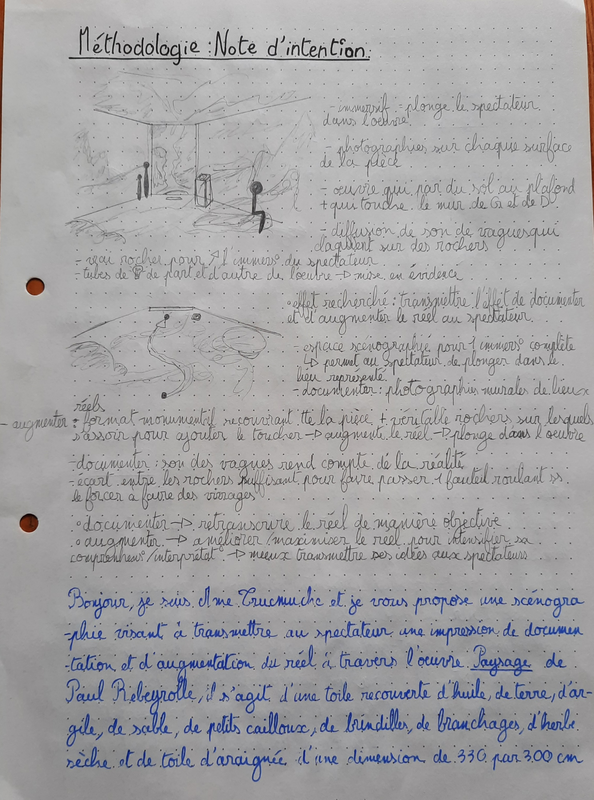 Méthodologie : Note d'intention.
- immersif : plonge le spectateur
dans l'oeuvre
- photographies sur chaque surface
de la pièce
- oeuvre qui par du sol au plafond
+ qui touche le mur de G et de D
- diffusion de son de vagues qui
s'agissent sur des rochers
- vrai rocher pour ↗ l'immers° du spectateur
- tubes de de part et d'autre de l'oeuvre → mise en évidence
• effet recherché : transmettre l'effet de documenter
et d'augmenter le réel au spectateur.
- espace scénographié pour 1 immers° complète
↳ permet au spectateur de plonger dans le
lieu représenté
- documenter : photographies murales de lieux
réels
- augmenter : format monumentif recouvrant tte la pièce + véritable rochers sur lesquels
s'assoir pour ajouter le toucher → augmente le réel → plonge dans l'oeuvre
- documenter : son des vagues rend compte de la réalité
- écart entre les rochers suffisant pour faire passer 1 fauteuil roulant ss
le forcer à faire des virages
• documenter → retranscrire le réel de manière objective
• augmenter → améliorer/maximiser le réel pour intensifier sa
compréhens°/interprétat° → mieux transmettre ses idées aux spectateurs
Bonjour, je suis Ame Trucmuche et je vous propose une scénogra
-phie visant à transmettre au spectateur une impression de documen
-tation et d'augmentation du réel à travers l'oeuvre Paysage de
Paul Rebeyrolle, il s'agit d'une toile recouverte d'huile, de terre, d'ar-
gile, de sable, de petits cailloux, de brindilles, de branchages, d'herbe
sèche et de toile d'araignée d'une dimension de 330 par 300 cm